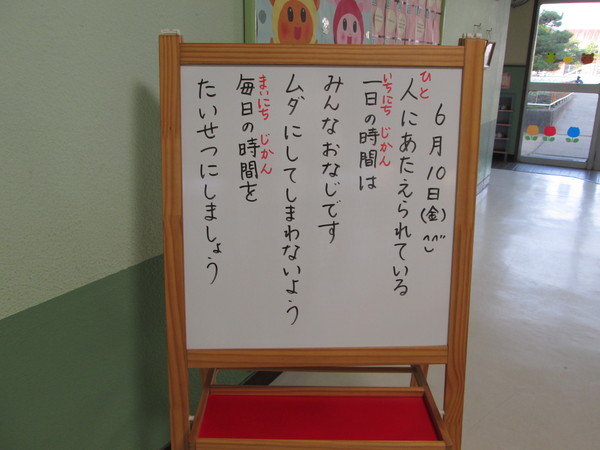 6月10日(金)^^
人にあたえられている
ひと
一日の時間は
いちにち じかん
みんなおなじです
ムダにしてしまわないよう
毎日の時間を
まいにち じかん
たいせつにしましょう